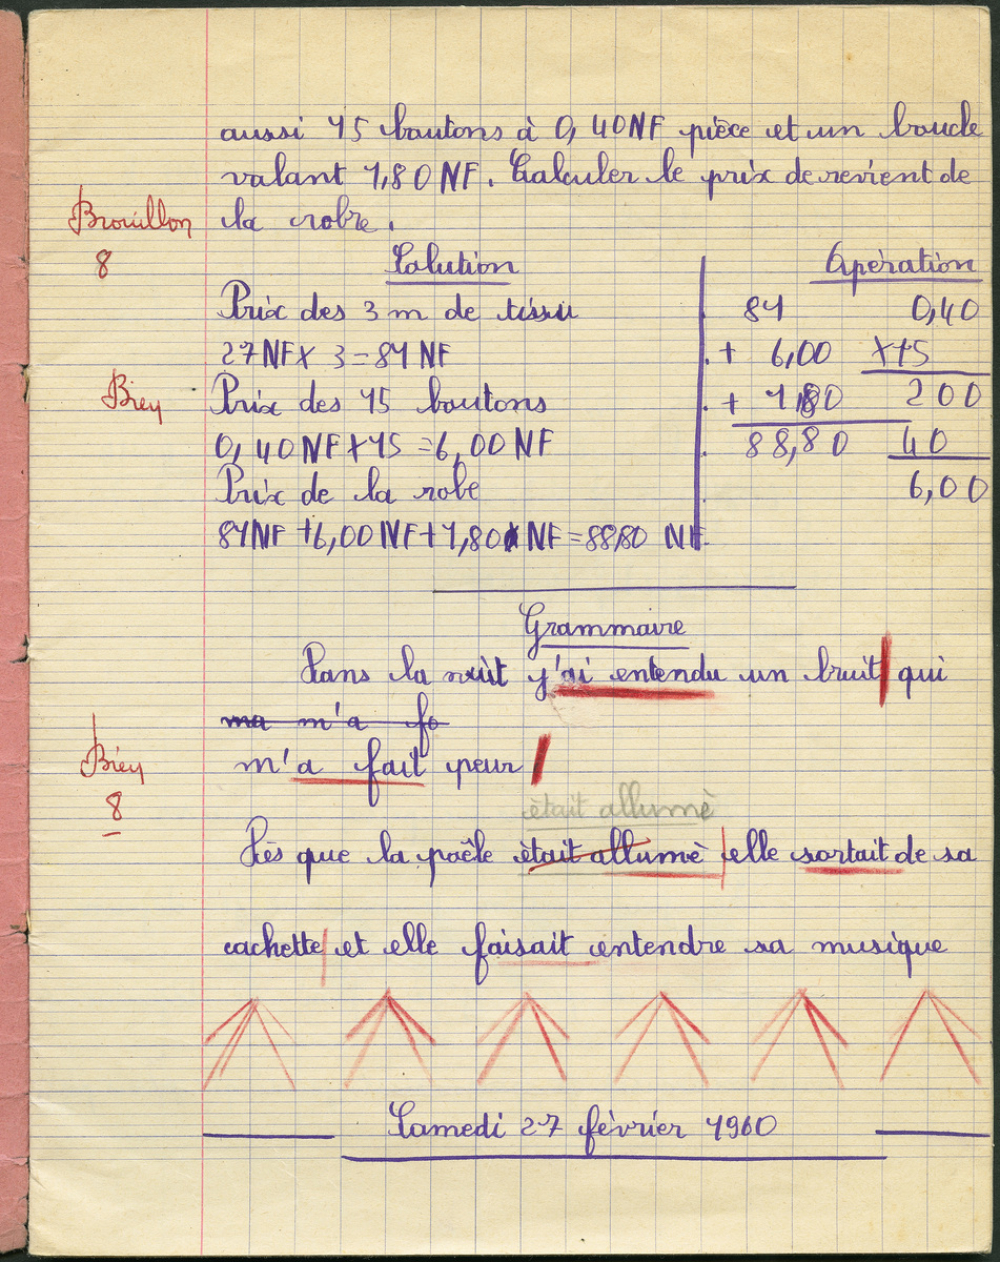 aussi 15 boutons à 0,40NF pièce et un boucle
valant 1,80 NF. Calculer le prix de revient de
Brouillon la robre.
8 Solution Opèration
Prix des 3 m de tissu 81 0,40
27 NF x 3 = 81 NF + 6,00 x15
Bien Prix des 15 boutons + 1,80 200
0,40 NF x 15 = 6,00 NF 88,80 40
Prix de la robe 6,00
81NF + 6,00 NF + 1,80 NF = 88,80 NF.
Grammaire
Dans la nuit j'ai entendu un bruit| qui
ma m'a fo
Bien m'a fait peur|
8 était allumè
Dès que la poêle était allumè |elle sortait de sa
cachette| et elle faisait entendre sa musique
Samedi 27 février 1960